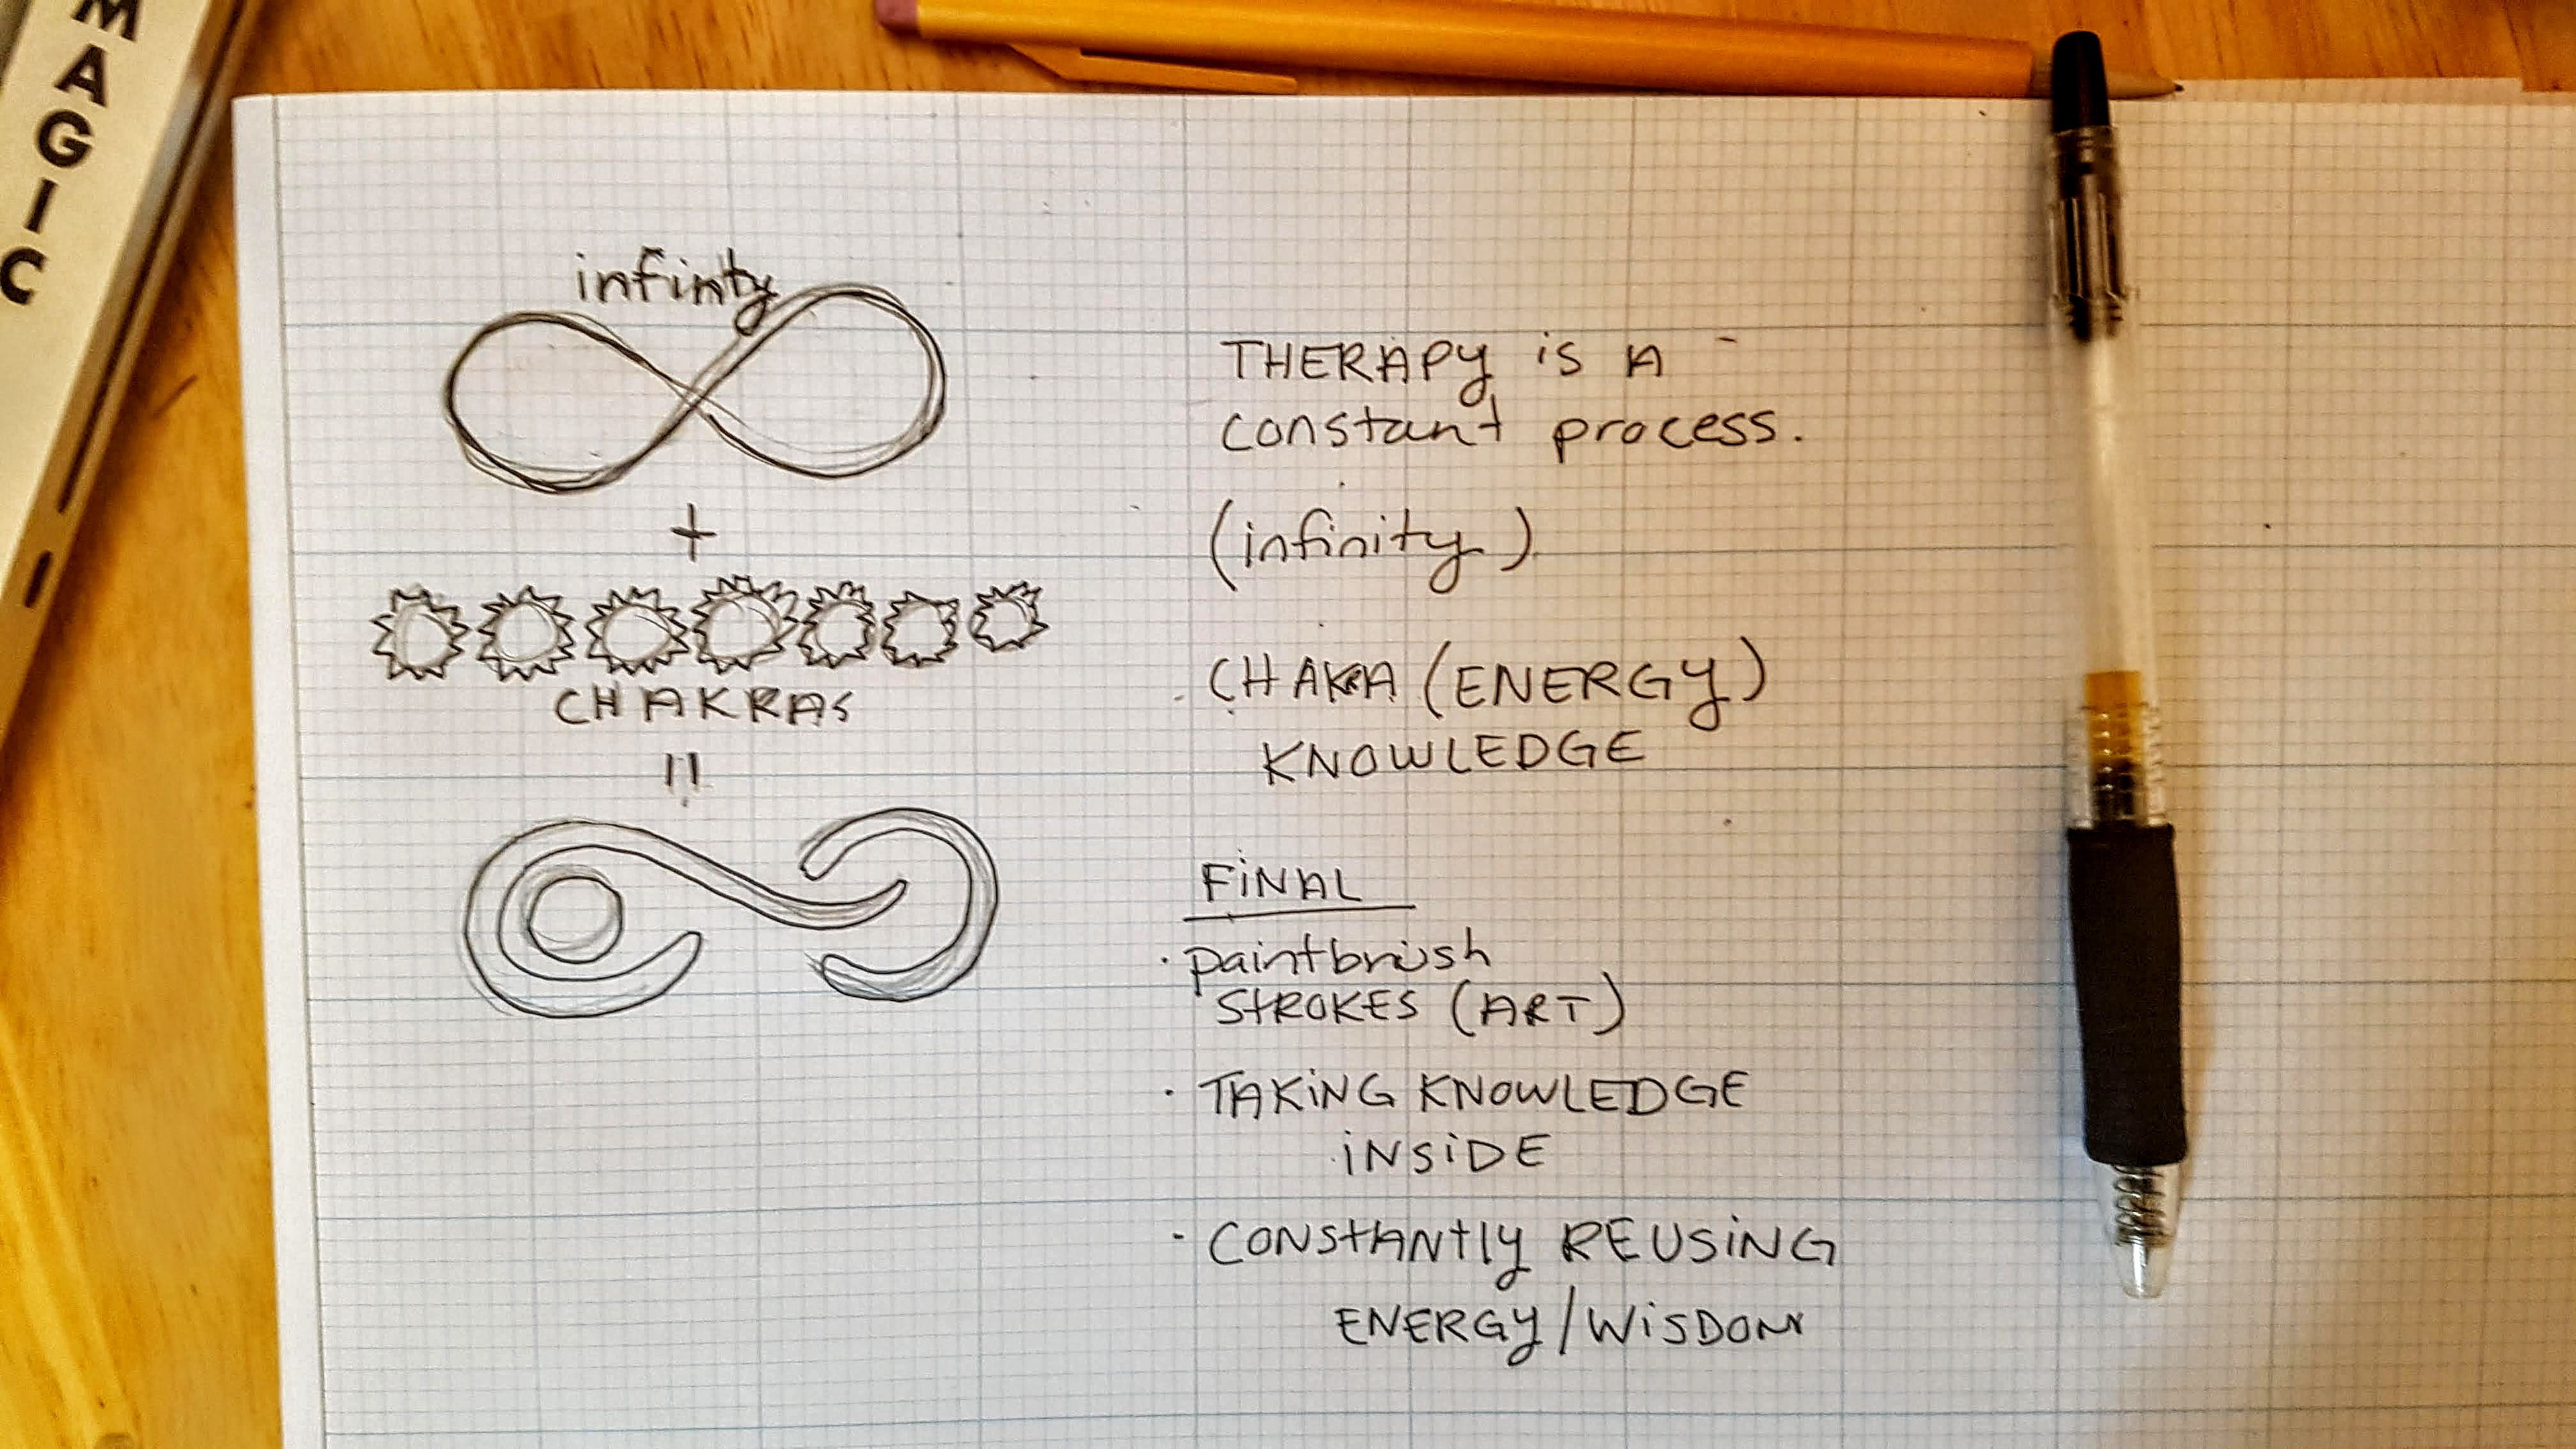 MAGIC
infinty
+
CHAKRAS
=
THERAPY is A
constant process.
(infinity)
CHAKRA (ENERGY)
KNOWLEDGE
FiNAL
· paintbrush
STROKES (ART)
· TAKiNG KNOWLEDGE
iNSiDE
- CONStANtly REUSiNG
ENERGY/WiSDOM